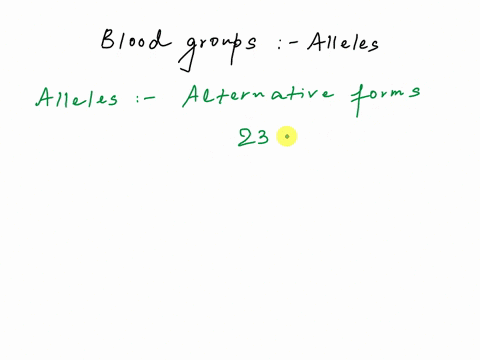 Blood groups :- Alleles
Alleles :- Alternative forms
23